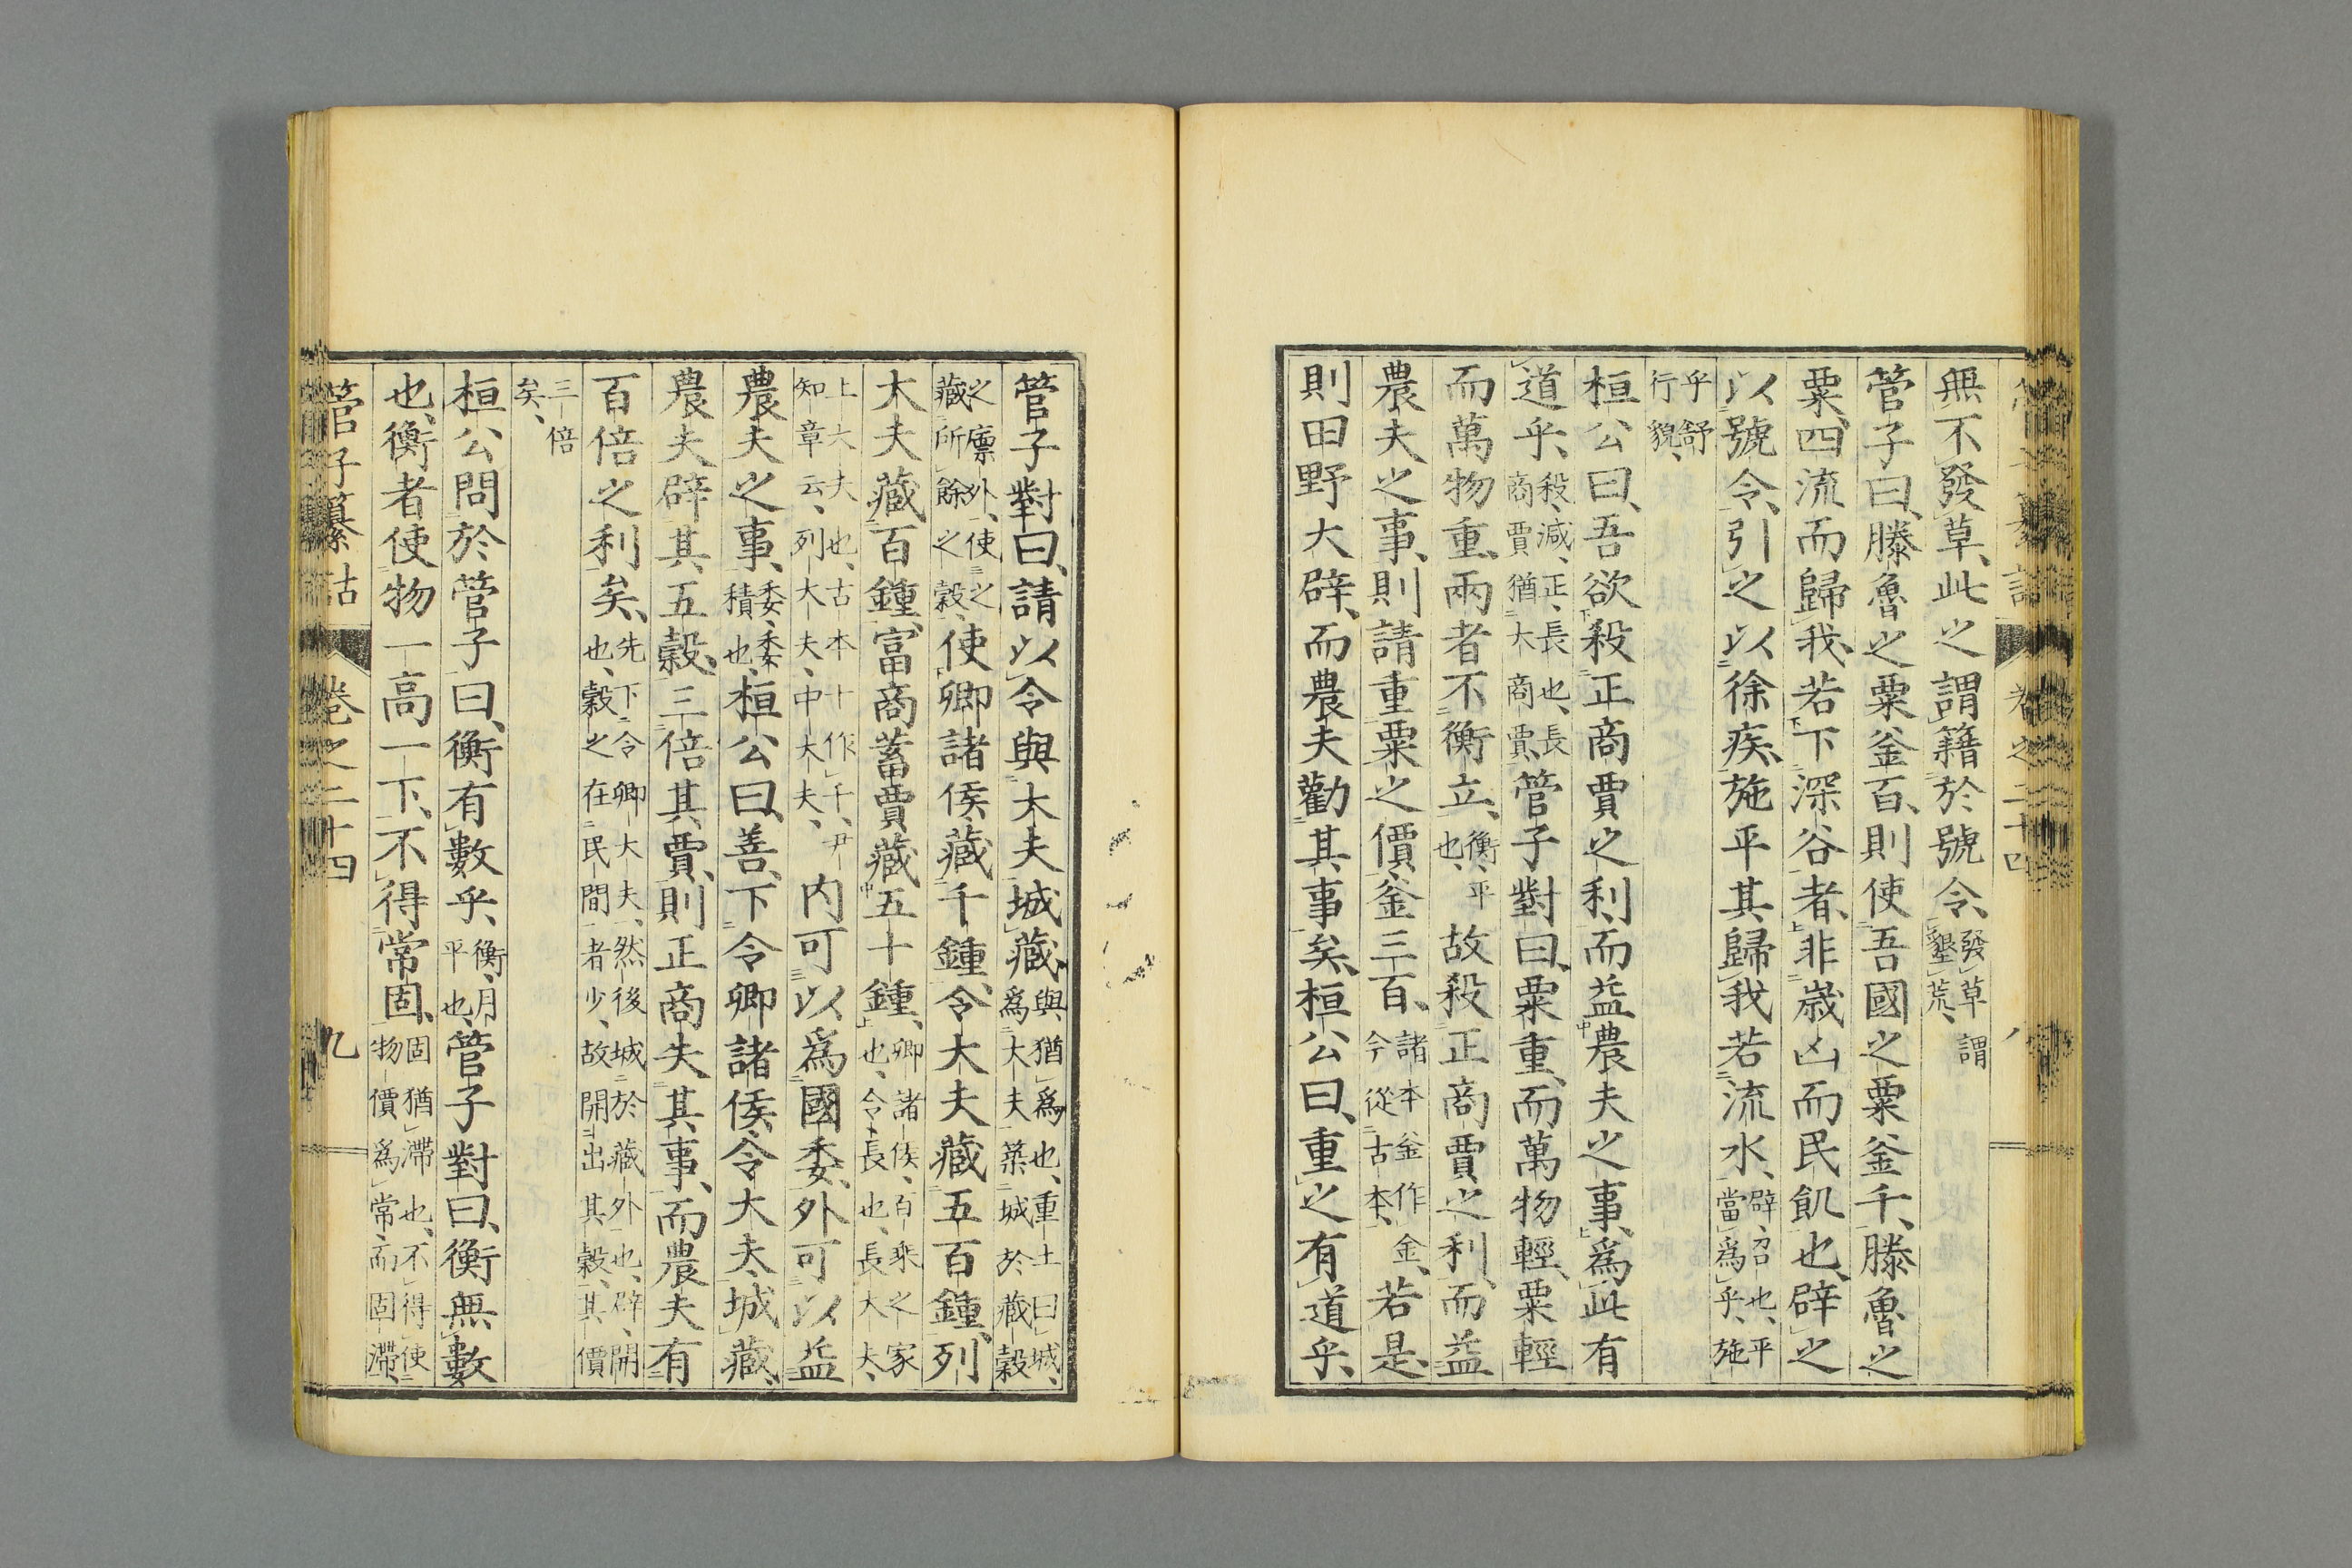 無不發草、此之謂籍於號令、發草謂墾荒、
管子曰、滕魯之粟釜百、則使吾國之粟釜千、滕魯之
粟、四流而歸我、若下深谷者、非歳凶而民飢也、辟之
以號令、引之以徐疾、施平其歸我若流水、辟、召也、平當爲乎、施
乎、舒行貌、
桓公曰、吾欲殺正商賈之利、而益農夫之事、爲此有
道乎、殺、減、正、長也、長商賈猶大商賈、管子對曰、粟重、而萬物輕、粟輕
而萬物重、兩者不衡立、衡、平也、故殺正商賈之利、而益
農夫之事、則請重粟之價、釜三百、諸本釜作金、今從古本、若是、
則田野大辟、而農夫勸其事矣、桓公曰、重之有道乎、
管子對曰、請以令與大夫城藏、與猶爲也、重土曰城、爲大夫築城於藏穀
之廩外、使之藏所餘之穀、使卿諸侯、藏千鍾、令大夫藏五百鍾、列
大夫藏百鍾、富商蓄賈藏五十鍾、卿諸侯、百乘之家也、令長也、長大夫、
上大夫也、古本十作千、尹知章云、列大夫、中大夫、内可以爲國委、外可以益
農夫之事、委、委積也、桓公曰、善、下令卿諸侯、令大夫、城藏、
農夫辟其五穀、三倍其賈、則正商失其事、而農夫有
百倍之利矣、先下令卿大夫、然後城於藏外也、辟、開也、穀之在民間者少、故開出其穀、其價
三倍矣、
桓公問於管子曰、衡有數乎、衡、月平也、管子對曰、衡無數
也、衡者使物一高一下、不得常固、固猶滯也、不得使物價爲常、而固滯、
管子纂詁 卷之二十四 九